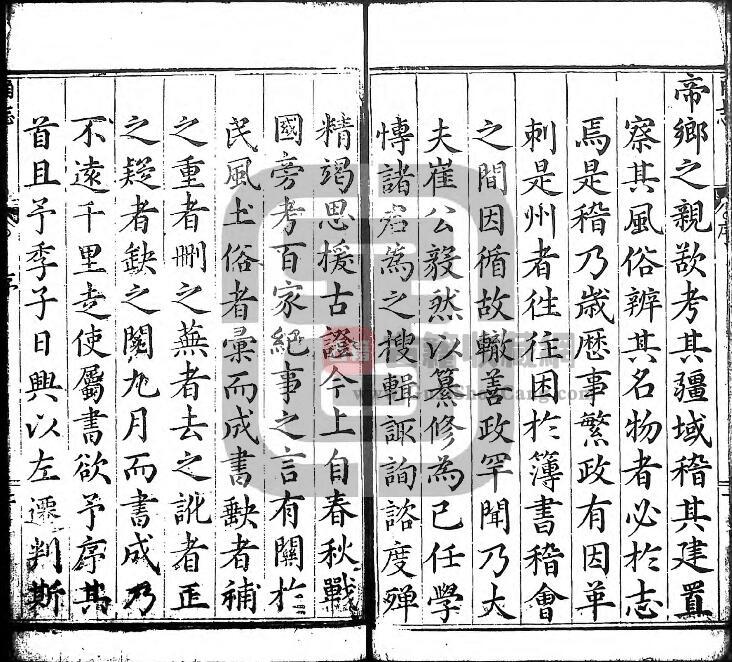 帝鄉之親欲考其疆域稽其建置
察其風俗辨其名物者必於志
焉是稽乃歲歷事繁政有因革
刺是州者往往困於簿書稽會
之間因循故轍善政罕聞乃大
夫崔公毅然以纂修為已任學
慱諸君為之搜輯諏詢諮度殫
精竭思援古證今上自春秋戰
國旁考百家紀事之言有關於
民風土俗者彙而成書缺者補
之重者刪之蕪者去之訛者正
之疑者缺之閱九月而書成乃
不遠千里走使屬書欲予序其
首且予季子日興以左遷判斯
序